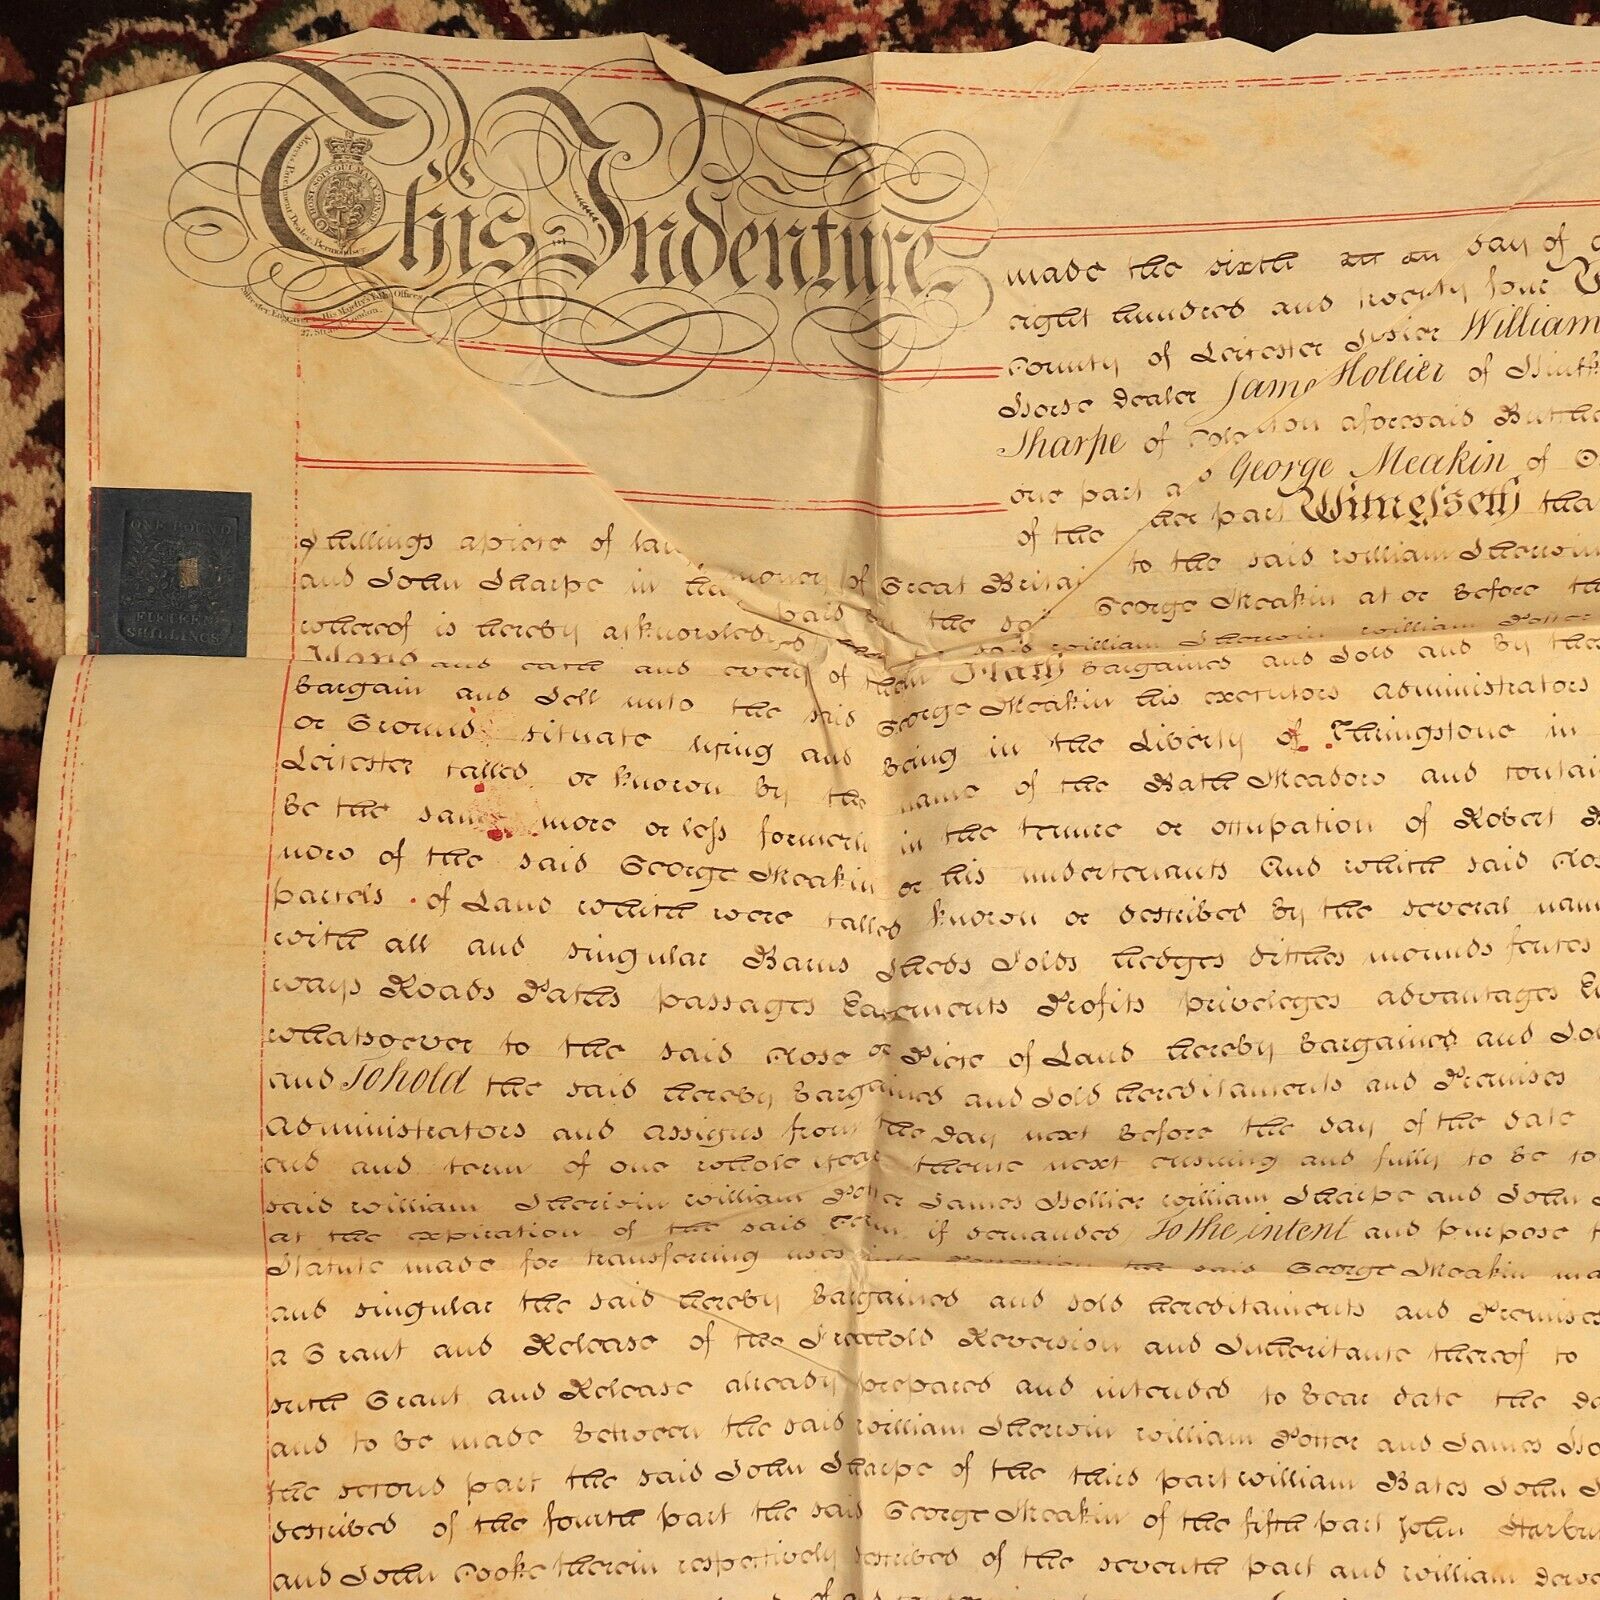 This Indenture
HONI SOIT QUI MAL Y PENSE
Silvester, Engraver to His Majesty's Public Offices
27, Strand, London.
made the sixth day of
eight hundred and twenty four
County of Leicester William
Horse Dealer James Hollier of
Sharpe of aforesaid
one part George Meakin of
of the part Witnesseth tha
ONE POUND
FIFTEEN
SHILLINGS
Shillings apiece of
and John Sharpe in money of Great Britain to the said William Sherwin
whereof is hereby acknowledged paid by the George Meakin at or before th
said William Sherwin William Potter
Have and each and every of them Have Bargained and Sold and By the
Bargain and Sell unto the said George Meakin his executors Administrators
or Ground situate lying and Being in the Liberty of Thringstone in
Leicester called or known By the name of the Bath Meadow and contai
Be the same more or less formerly in the tenure or occupation of Robert
now of the said George Meakin or his undertenants And which said Clos
parcels of Land which were called known or described By the several nam
with all and singular Barns Sheds Folds hedges ditches mounds fences
ways Roads Paths passages Easements Profits priveleges advantages
whatsoever to the said Close or Piece of Land hereby Bargained and So
and To hold the said hereby Bargained and Sold hereditaments and Premises
Administrators and Assigns from the day next Before the day of the date
end and term of one whole year thence next ensuing and fully to be co
said William Sherwin William Potter James Hollier William Sharpe and John
at the expiration of the said Term if demanded To the intent and purpose
Statute made for transferring uses into Possession the said George Meakin ma
and singular the said hereby Bargained and sold hereditaments and Premises
a Grant and Release of the Freehold Reversion and Inheritance thereof to
such Grant and Release already prepared and intended to Bear date the da
and to be made Between the said William Sherwin William Potter and James Ho
the second part the said John Sharpe of the third part William Bates John
described of the fourth part the said George Meakin of the fifth part John
and John Cooke therein respectively described of the seventh part and William